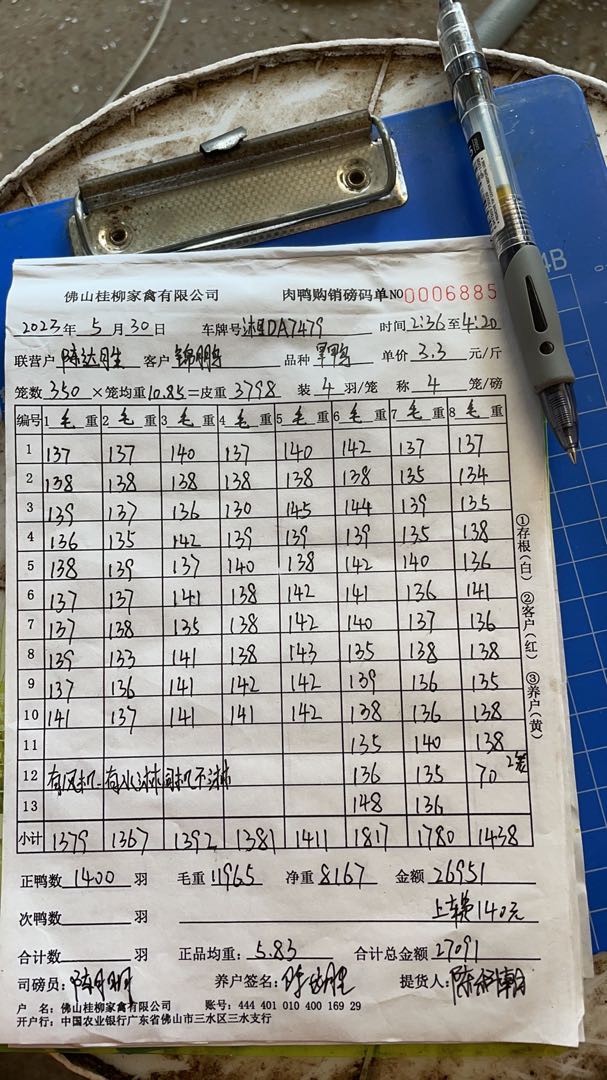 佛山桂柳家禽有限公司 肉鸭购销磅码单NO0006885
2023年 5 月 30 日 车牌号 DA7479 时间 2:36 至 4:20
联营户 陈达胜 客户 锦鹏 品种 单价 3.3 元/斤
笼数 350 ×笼均重 10.85 =皮重 3798 装 4 羽/笼 称 4 笼/磅
编号 1 毛 重 2 毛 重 3 毛 重 4 毛 重 5 毛 重 6 毛 重 7 毛 重 8 毛 重
1 137 137 140 137 140 142 137 137
2 138 138 138 138 138 138 135 134
3 139 137 136 130 145 144 139 135
4 136 135 142 139 139 139 135 138
5 138 139 137 140 138 142 140 136
6 137 137 141 138 142 141 136 141
7 137 138 135 138 142 140 137 136
8 139 133 141 138 143 135 138 138
9 137 136 141 142 142 139 136 135
10 141 137 141 141 142 138 136 138
11 135 140 138
12 有风机 有水淋 不淋 136 135 70 2笼
13 148 136
小计 1379 1367 1392 1381 1411 1817 1780 1438
正鸭数 1400 羽 毛重 11965 净重 8167 金额 26951
次鸭数 羽 上车 140元
合计数 羽 正品均重: 5.83 合计总金额 27091
司磅员: 养户签名: 陈达胜 提货人:
户 名: 佛山桂柳家禽有限公司 账号: 444 401 010 400 169 29
开户行: 中国农业银行广东省佛山市三水区三水支行
①存根(白) ②客户(红) ③养户(黄)
4B